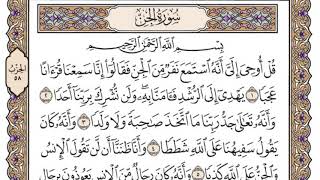 سُورَةُ الْجِنِّ
بِسْمِ اللَّهِ الرَّحْمَٰنِ الرَّحِيمِ
قُلْ أُوحِيَ إِلَيَّ أَنَّهُ اسْتَمَعَ نَفَرٌ مِّنَ الْجِنِّ فَقَالُوا إِنَّا سَمِعْنَا قُرْءَانًا
عَجَبًا ١ يَهْدِي إِلَى الرُّشْدِ فَـَٔامَنَّا بِهِ وَلَن نُّشْرِكَ بِرَبِّنَا أَحَدًا ٢
وَأَنَّهُ تَعَالَىٰ جَدُّ رَبِّنَا مَا اتَّخَذَ صَاحِبَةً وَلَا وَلَدًا ٣ وَأَنَّهُ كَانَ
يَقُولُ سَفِيهُنَا عَلَى اللَّهِ شَطَطًا ٤ وَأَنَّا ظَنَنَّا أَن لَّن تَقُولَ الْإِنسُ
وَالْجِنُّ عَلَى اللَّهِ كَذِبًا ٥ وَأَنَّهُ كَانَ رِجَالٌ مِّنَ الْإِنسِ يَعُوذُونَ بِرِجَالٍ
الحزب
٥٨